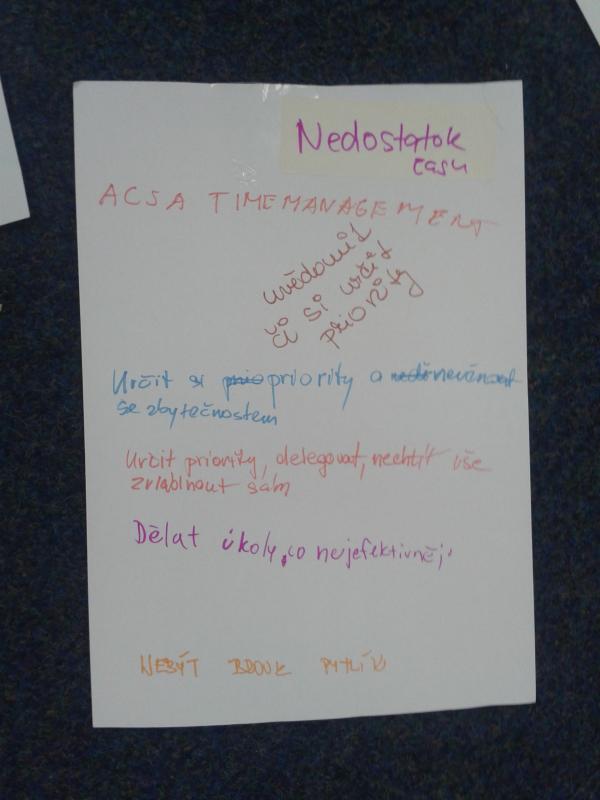 Nedostatok
času
ACSA TIMEMANAGEMENT
uvědomit
či si určit
priority
Určit si prio priority a nevěnovat
se zbytečnostem
Určit priority, delegovat, nechtít vše
zvládnout sám
Dělat úkoly, co nejefektivněji
NEBÝT BROUK PYTLÍK